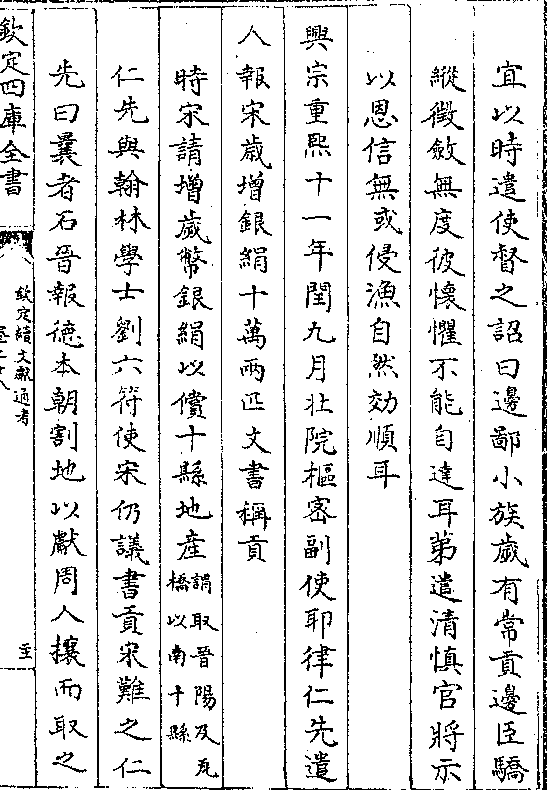 宜以時遣使督之詔曰邊鄙小族歲有常貢邊臣驕
縱徵斂無度彼懷懼不能自達耳第遣清慎官將示
以恩信無或侵漁自然効順耳
興宗重熙十一年閏九月北院樞密副使耶律仁先遣
人報宋歲增銀絹十萬兩匹文書稱貢
時宋請增歲幣銀絹以償十縣地産謂取晉陽及瓦橋以南十縣
仁先與翰林學士劉六符使宋仍議書貢宋難之仁
先曰曩者石晉報德本朝割地以獻周人攘而取之
欽定四庫全書
欽定續文獻通考